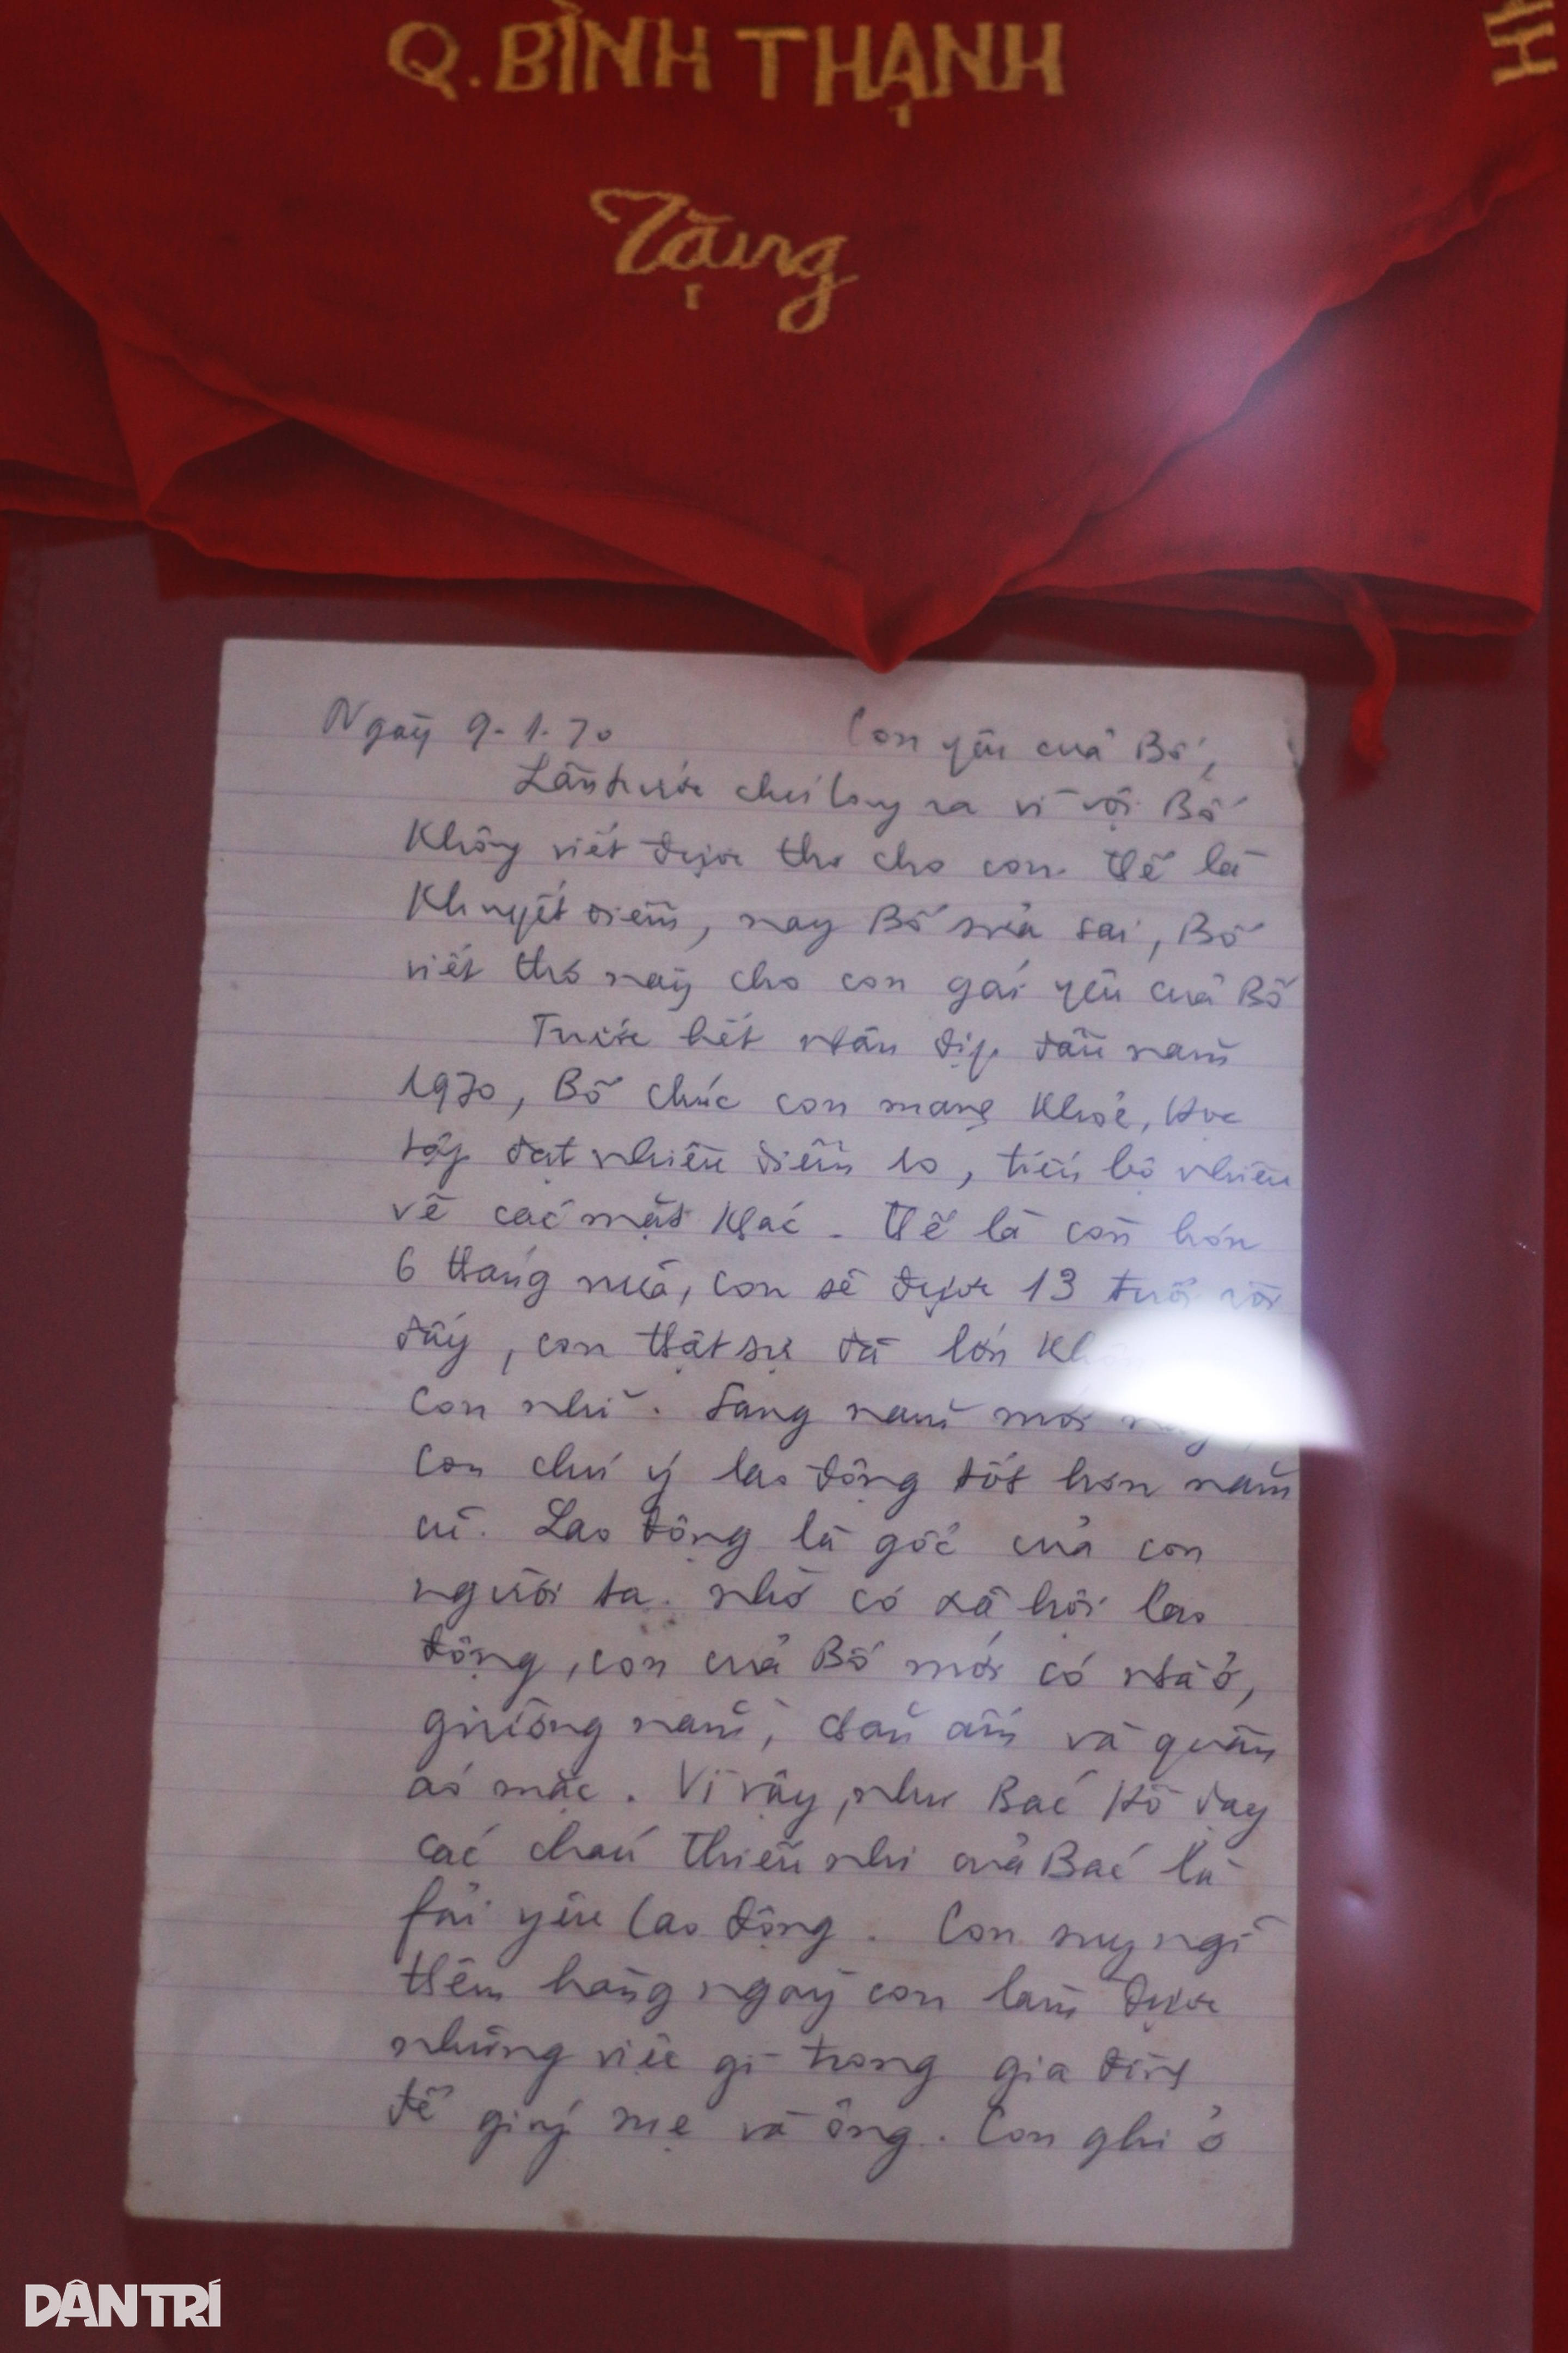 Q. BÌNH THẠNH
Tặng
Ngày 9-1-70 Con yêu của Bố,
Lần trước chú Long ra vì vội Bố
Không viết được thư cho con. Thế là
Khuyết điểm, nay Bố sửa sai, Bố
viết thư này cho con gái yêu của Bố
Trước hết nhân dịp đầu năm
1970, Bố chúc con mạnh khỏe, học
tập đạt nhiều điểm 10, tiến bộ nhiều
về các mặt khác. Thế là còn hơn
6 tháng nữa, con sẽ được 13 tuổi rồi
đấy, con thật sự đã lớn
con nhỉ. Sang năm mới
con chú ý lao động tốt hơn năm
cũ. Lao động là gốc của con
người ta. Nhờ có xã hội lao
động, con của Bố mới có nhà ở,
giường nằm, chăn ấm và quần
áo mặc. Vì vậy, như Bác Hồ dạy
các cháu thiếu nhi của Bác là
fải yêu lao động. Con suy ngĩ
thêm hàng ngày con làm được
những việc gì trong gia đình
để giúp mẹ và ông. Con ghi ở
DÂN TRÍ